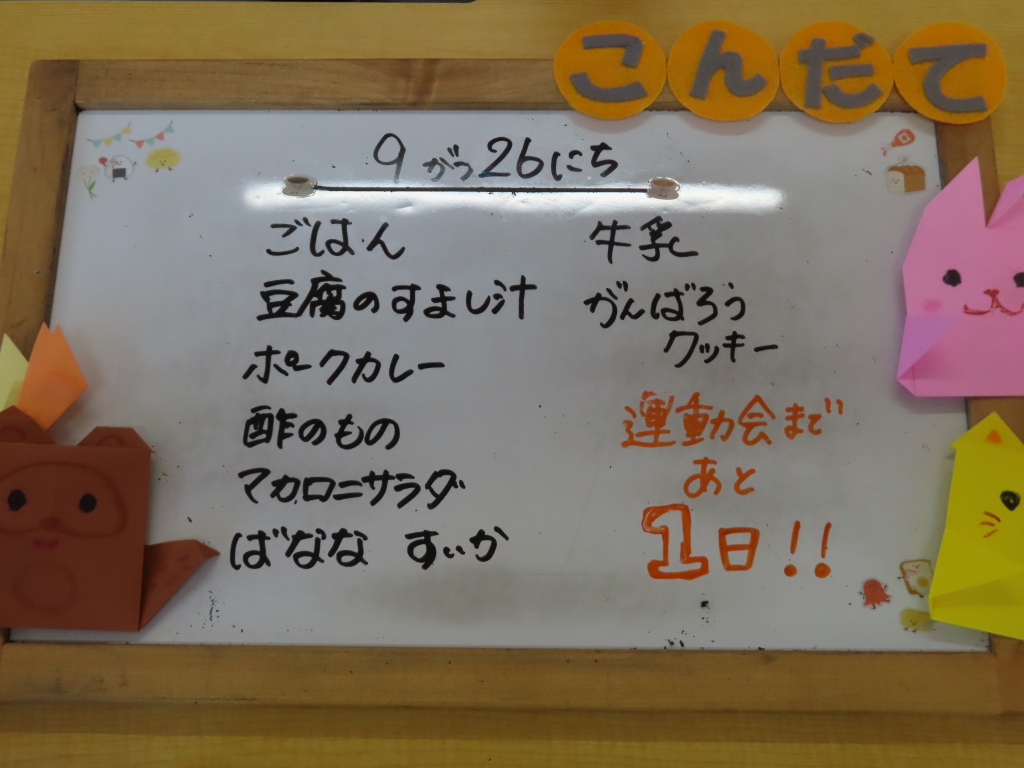 こんだて
9がつ26にち
ごはん
豆腐のすまし汁
ポークカレー
酢のもの
マカロニサラダ
ばなな すいか
牛乳
がんばろう
クッキー
運動会まで
あと
1日!!